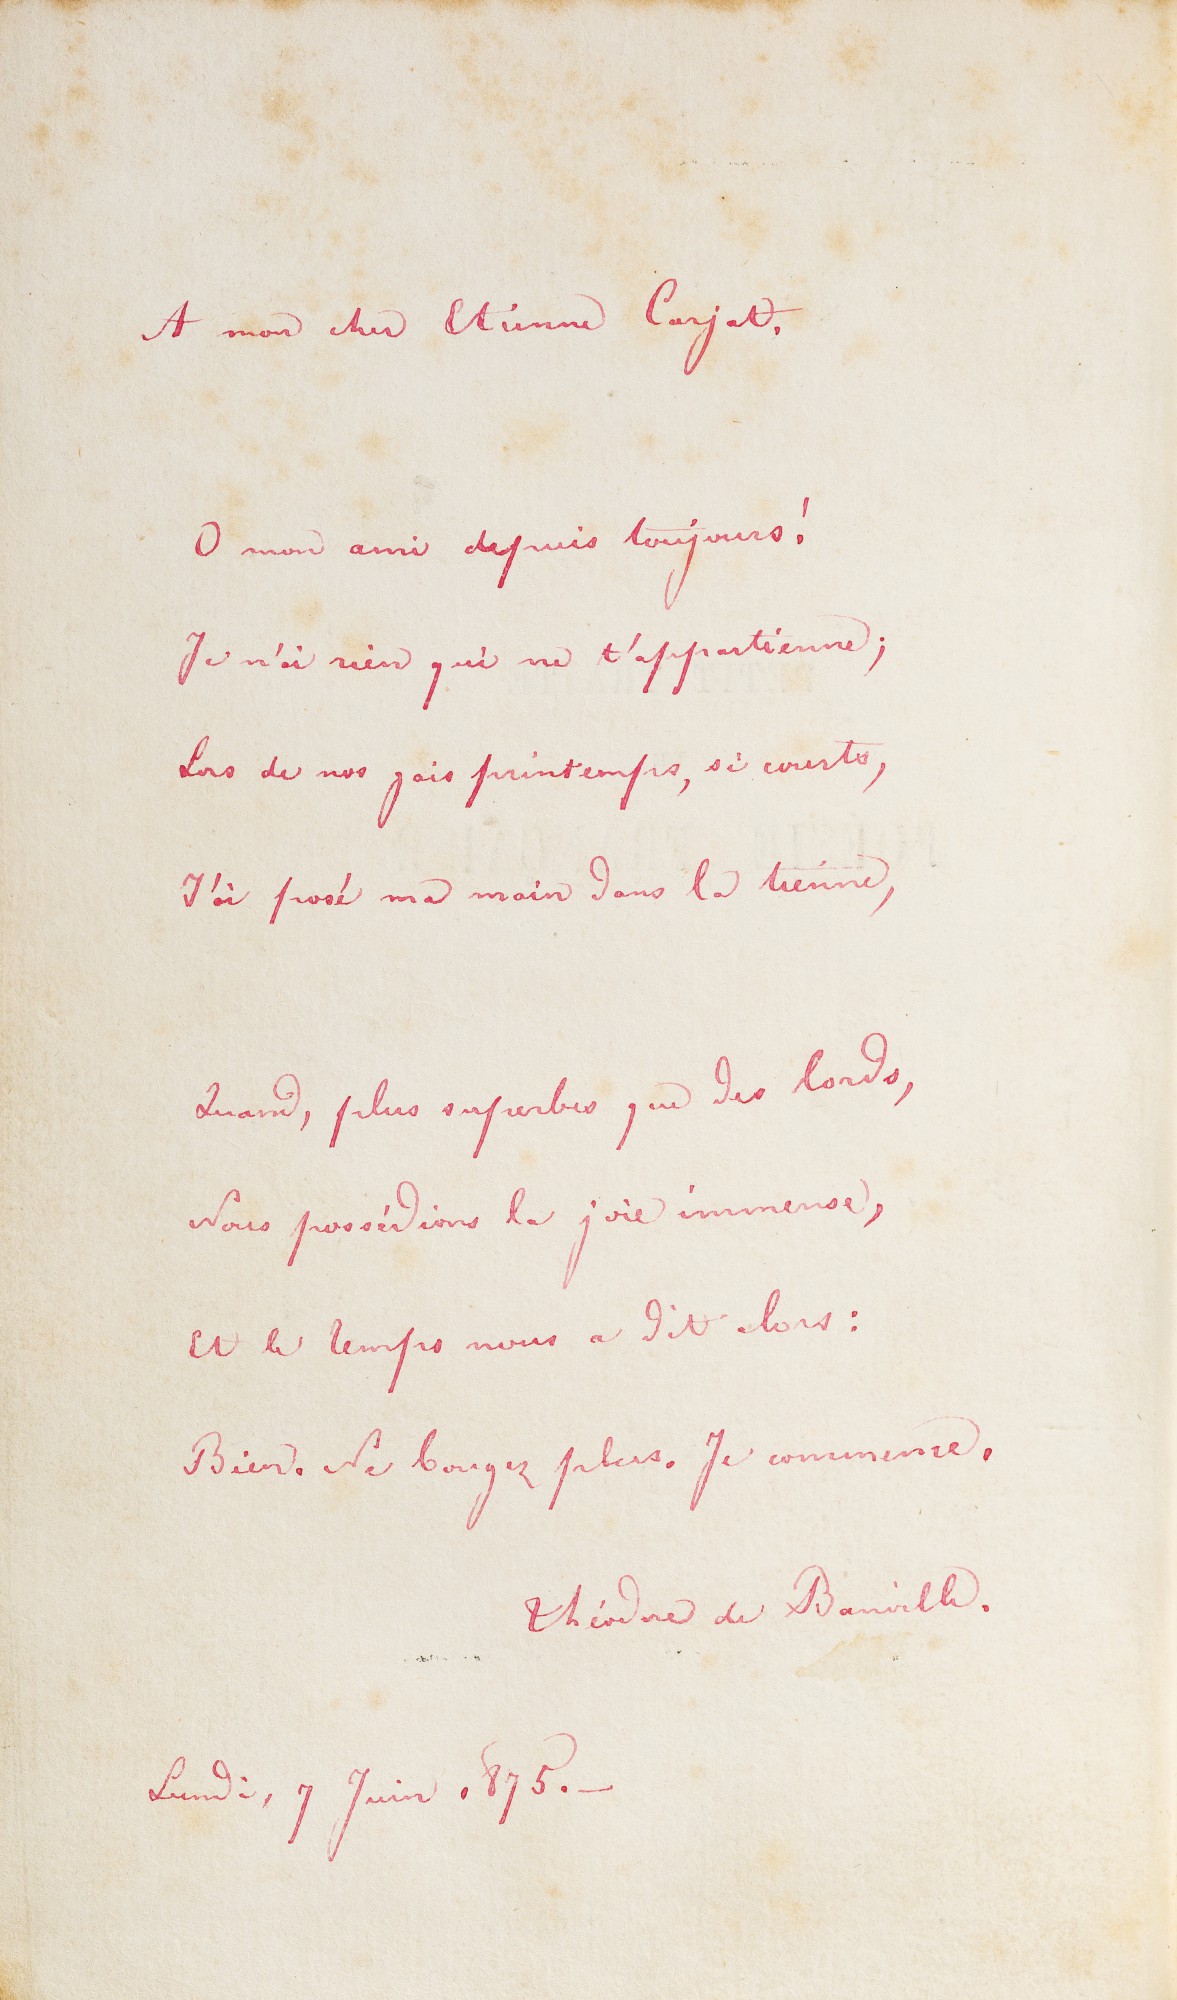 A mon cher Etienne Carjat.
O mon ami depuis toujours!
Je n'ai rien qui ne t'appartienne;
Lors de nos gais printemps, si courts,
J'ai posé ma main dans la tienne,
Quand, plus superbes que des lords,
Nous possédions la joie immense,
Et le temps nous a dit alors:
Bien. Ne bougez plus. Je commence.
Théodore de Banville.
Lundi, 7 Juin .875.—